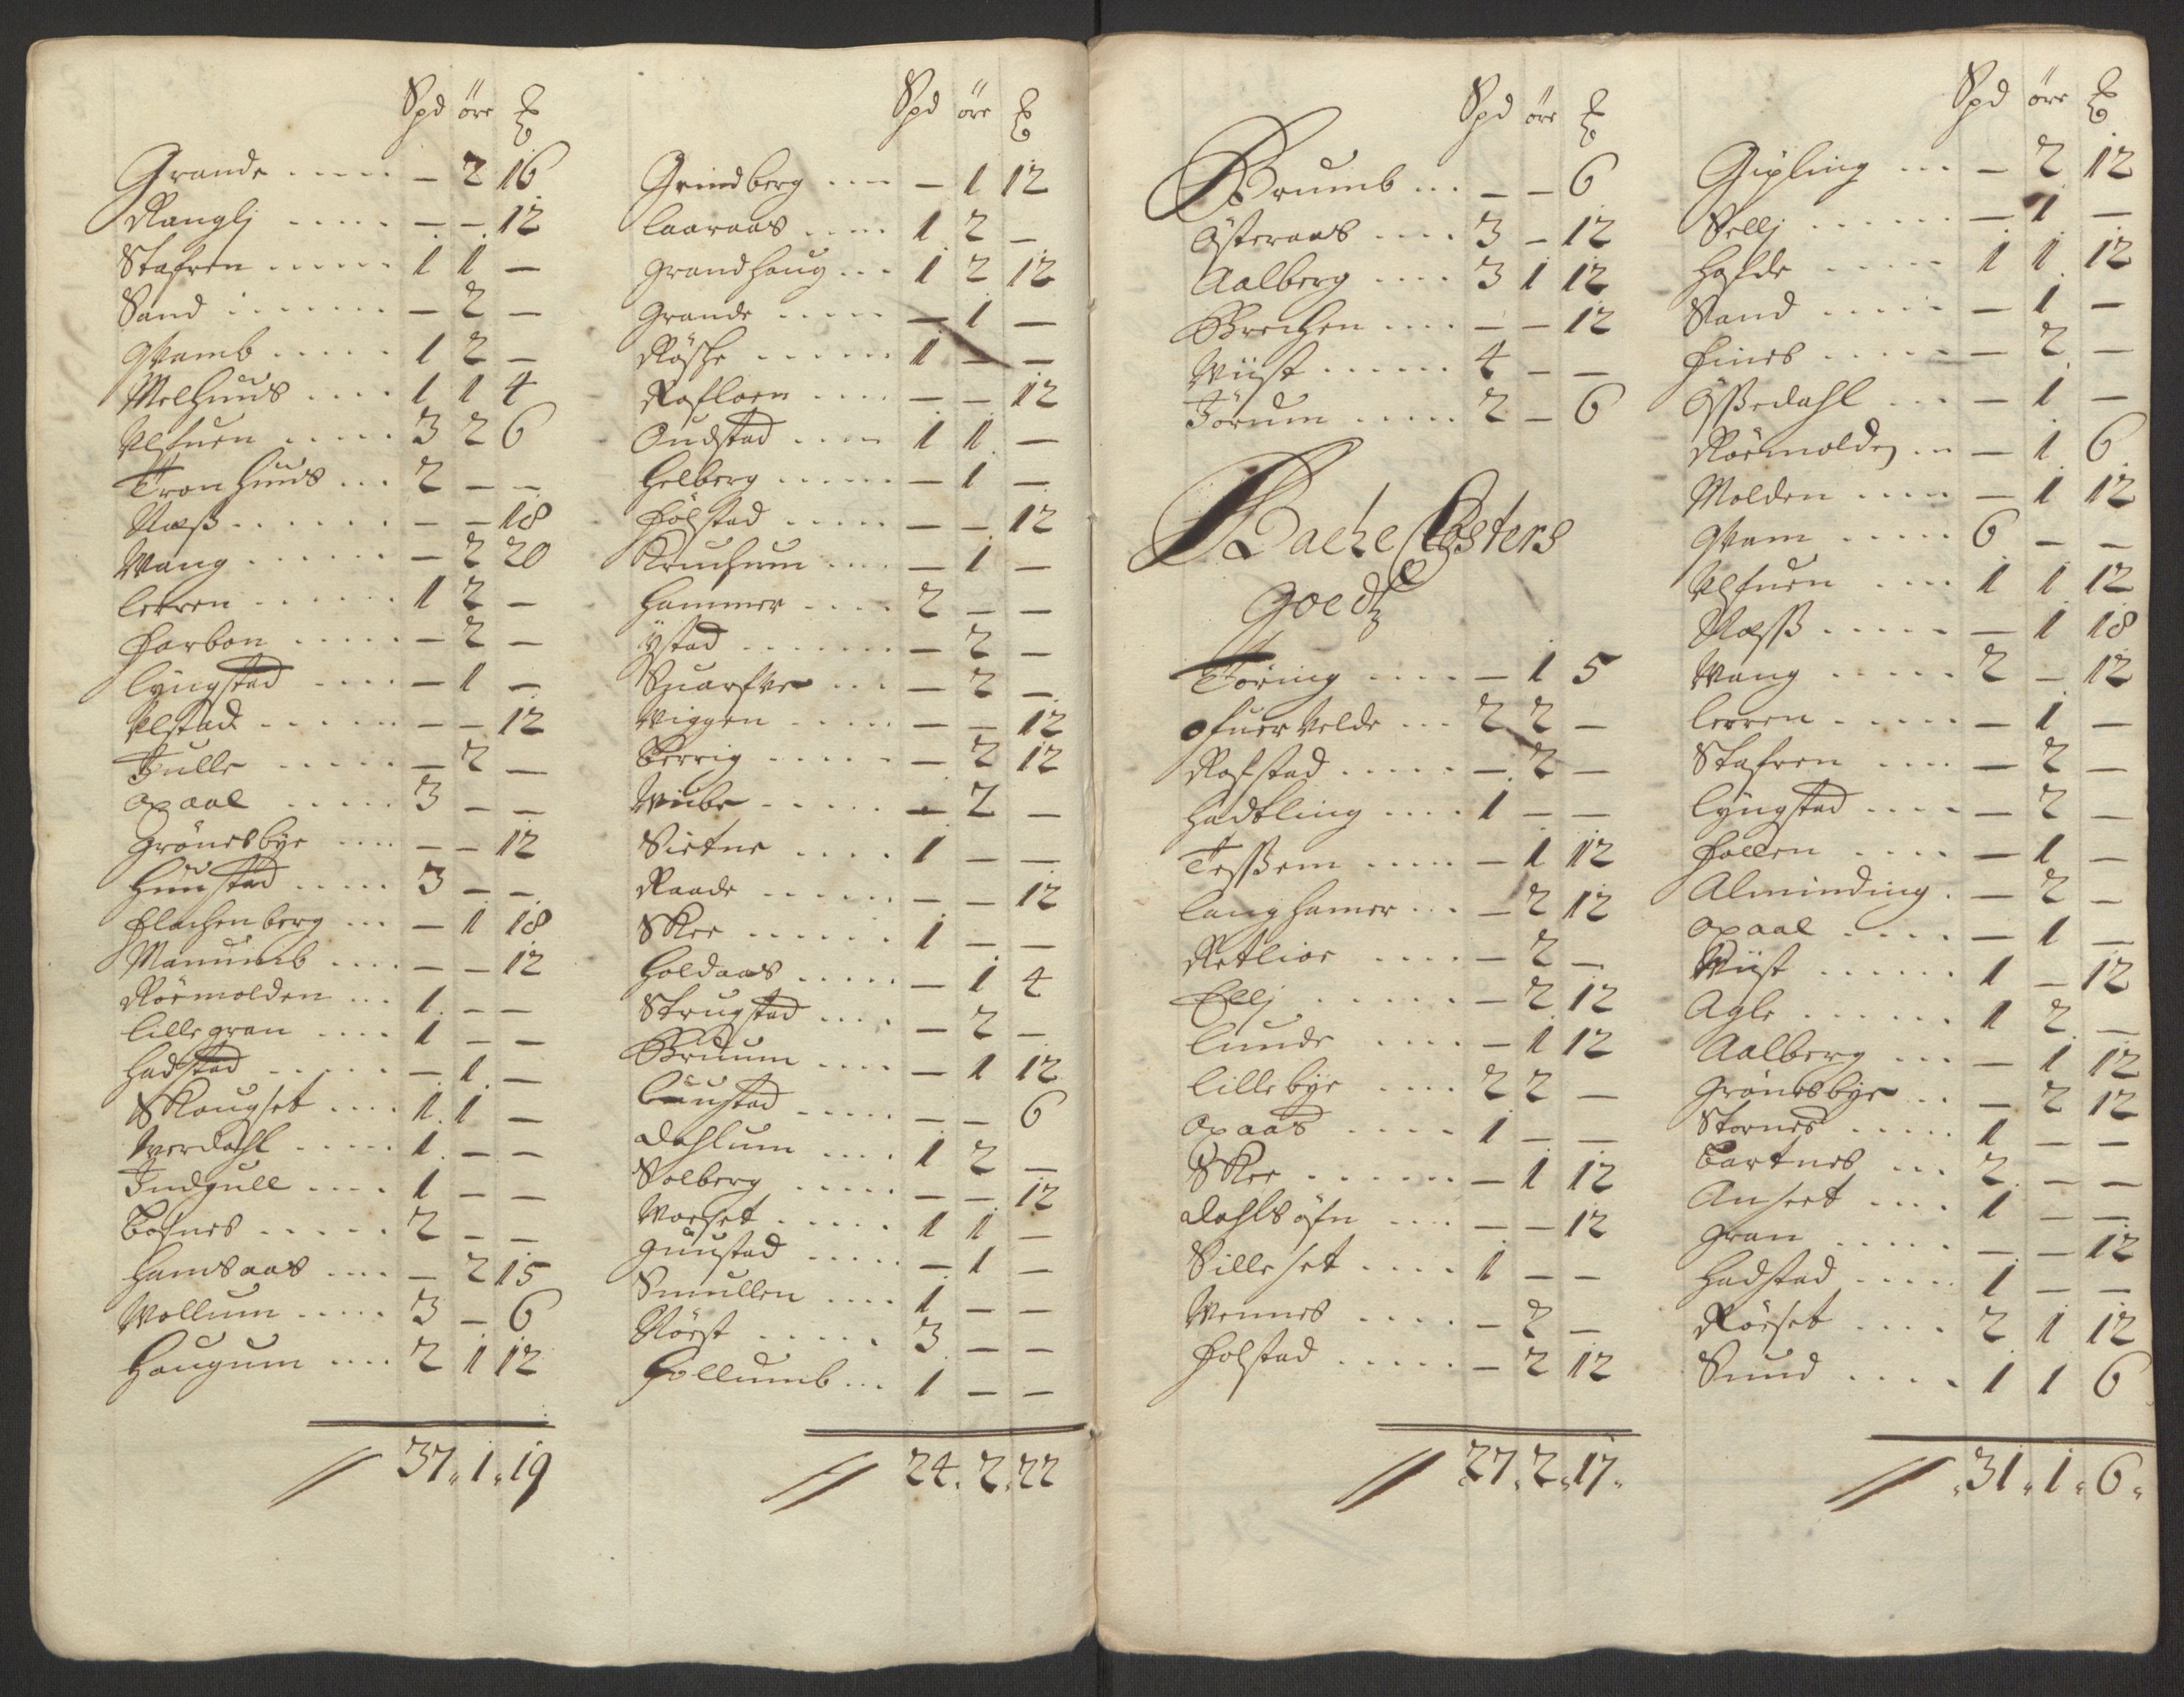 Spd öre
Grande ..... – 2 16
Ranglj ..... – – 12
Stafren ..... 1 1 –
Sand ....... – 2 –
Qvamb ..... 1 2 –
Melhuus .... 1 1 4
Ulfuen ..... 3 2 6
Tronhuus ... 2 – –
Næß ....... – – 18
Wang ...... – 2 20
Lerren ...... 1 2 –
Farbon ..... – 2 –
Lÿngstad .... – 1 –
Ulstad ...... – – 12
Tulle ..... – 2 –
Opaal ..... 3 – –
Grönesbÿe .... – – 12
Huustad ..... 3 – –
Flachenberg ... – 1 18
Manumb .... – – 12
Rörmolden ... 1 – –
Lillegran .... 1 – –
Hadstad ..... – 1 –
Skougset .... 1 1 –
Werdahl ..... 1 – –
Indgull .... 1 – –
Bosnes ..... 2 – –
Hamsaas .... – 2 15
Wollum ..... 3 – 6
Haugum .... 2 1 12
37. 1. 19
Spd öre
Grindberg .... – 1 12
Laaraas .... 1 2 –
Grandhaug ... 1 2 12
Grande ..... – 1 –
Röshe ...... 1 – –
Rosloen .... – – 12
Oudstad .... 1 1 –
Helberg ..... – 1 –
Fölstad ..... – – 12
Kruchum .... – 1 –
Hammer .... 2 – –
Ÿstad ....... – 2 –
Snarfve ... – 2 –
Wiggen ..... – – 12
Berrig ..... – 2 12
Wiibe ..... – 2 –
Sietne .... 1 – –
Raade ...... – – 12
Skee ...... 1 – –
Holdaas ..... – 1 4
Strugstad .... – 2 –
Bruum .... – 1 12
Luustad ..... – – 6
Dahlum .... 1 2 –
Solberg ..... – – 12
Worset ..... 1 1 –
Guustad .... – 1 –
Smullen .... 1 – –
Nöest ..... 3 – –
Hollumb ... 1 – –
24. 2. 22
Spd öre
Brumb ... – – 6
Österaas .... 3 – 12
Aalberg .... 3 1 12
Brechen .... – – 12
Wiist ...... 4 – –
Jörum ..... 2 – 6
Bache Closters
Goedz
Töring .... – 1 5
Ofuervelde ... 2 2 –
Rosstad ..... – 2 –
Hadtling .... 1 – –
Teßem ..... – 1 12
Langhamer ... – 2 12
Retlior .... – 2 –
Ellj ..... – 2 12
Lunde .... – 1 12
Lillebÿe .... 2 2 –
Opaas .... 1 – –
Skee ...... – 1 12
Dahlsösn .... – – 12
Silleset .... 1 – –
Wennes .... – 2 –
Folstad ..... – 2 12
27. 2. 17.
Spd öre
Gipling ... – 2 12
Sellj ..... – 1 –
Hafde ..... 1 1 12
Sand ..... – 1 –
Fines ..... – 2 –
Ößedahl ... – 1 –
Rörmolden .. – 1 6
Molden .... – 1 12
Qvam ..... 6 – –
Ulfuen .... 1 1 12
Næß ..... – 1 18
Wang ..... 2 – 12
Lerren ..... – 1 –
Stafren .... – 2 –
Lÿngstad .... – 2 –
Follen .... – 1 –
Alminding . – 2 –
Opaal .... – 1 –
Wiist ...... 1 – 12
Agle ...... 1 2 –
Aalberg ... – 1 12
Grönesbÿe .. – 2 12
Stornes ..... 1 – –
Bartnes ... 2 – –
Anseet .... 1 – –
Gran ..... – – 12
Hadstad .... 1 – –
Röeset .... 2 1 12
Sund .... 1 1 6
31. 1. 6.